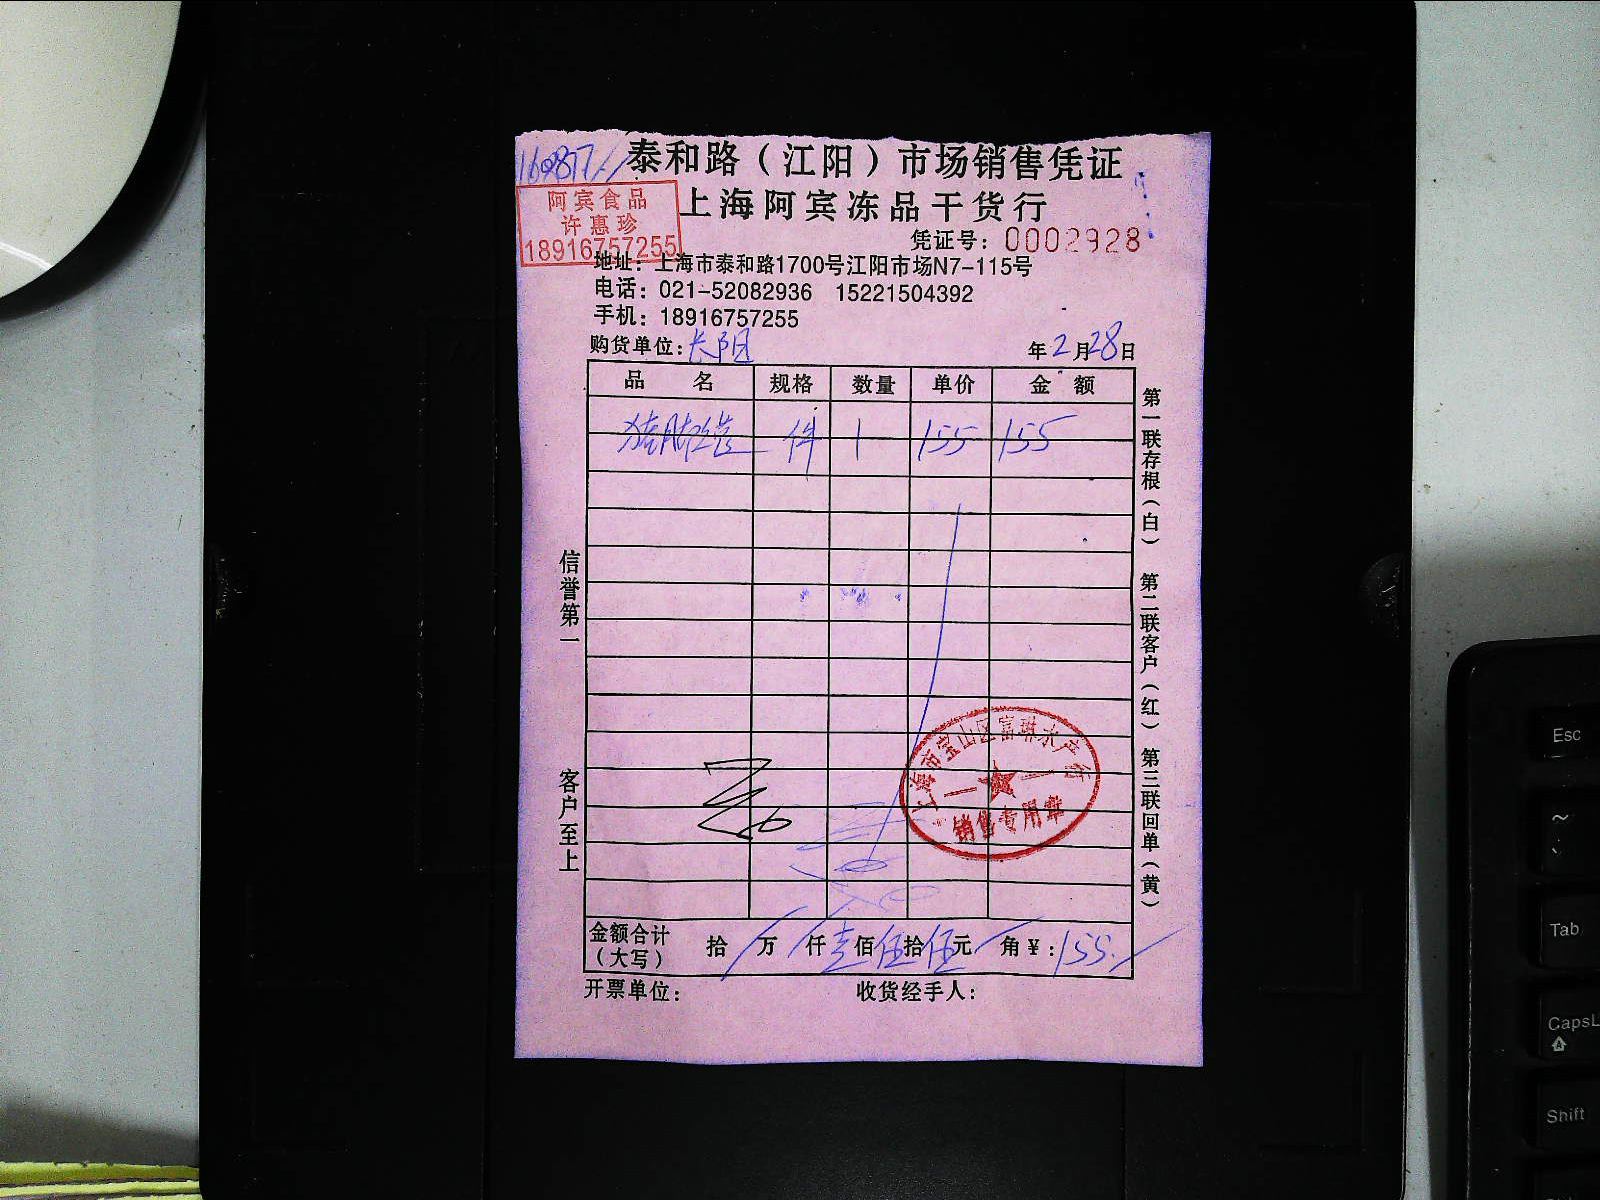 160877
泰和路（江阳）市场销售凭证
阿宾食品
许惠珍
18916757255
上海阿宾冻品干货行
凭证号：0002928
地址：上海市泰和路1700号江阳市场N7-115号
电话：021-52082936 15221504392
手机：18916757255
购货单位：长阳
年2月28日
品 名 规格 数量 单价 金 额
猪脚 件 1 155 155
第一联存根（白） 第二联客户（红） 第三联回单（黄）
信誉第一 客户至上
上海市宝山区富琳水产行
销售专用章
金额合计（大写） 拾 万 仟 壹佰 伍拾 伍元 角 ¥：155.
开票单位： 收货经手人：
Esc
~
Tab
CapsL
Shift